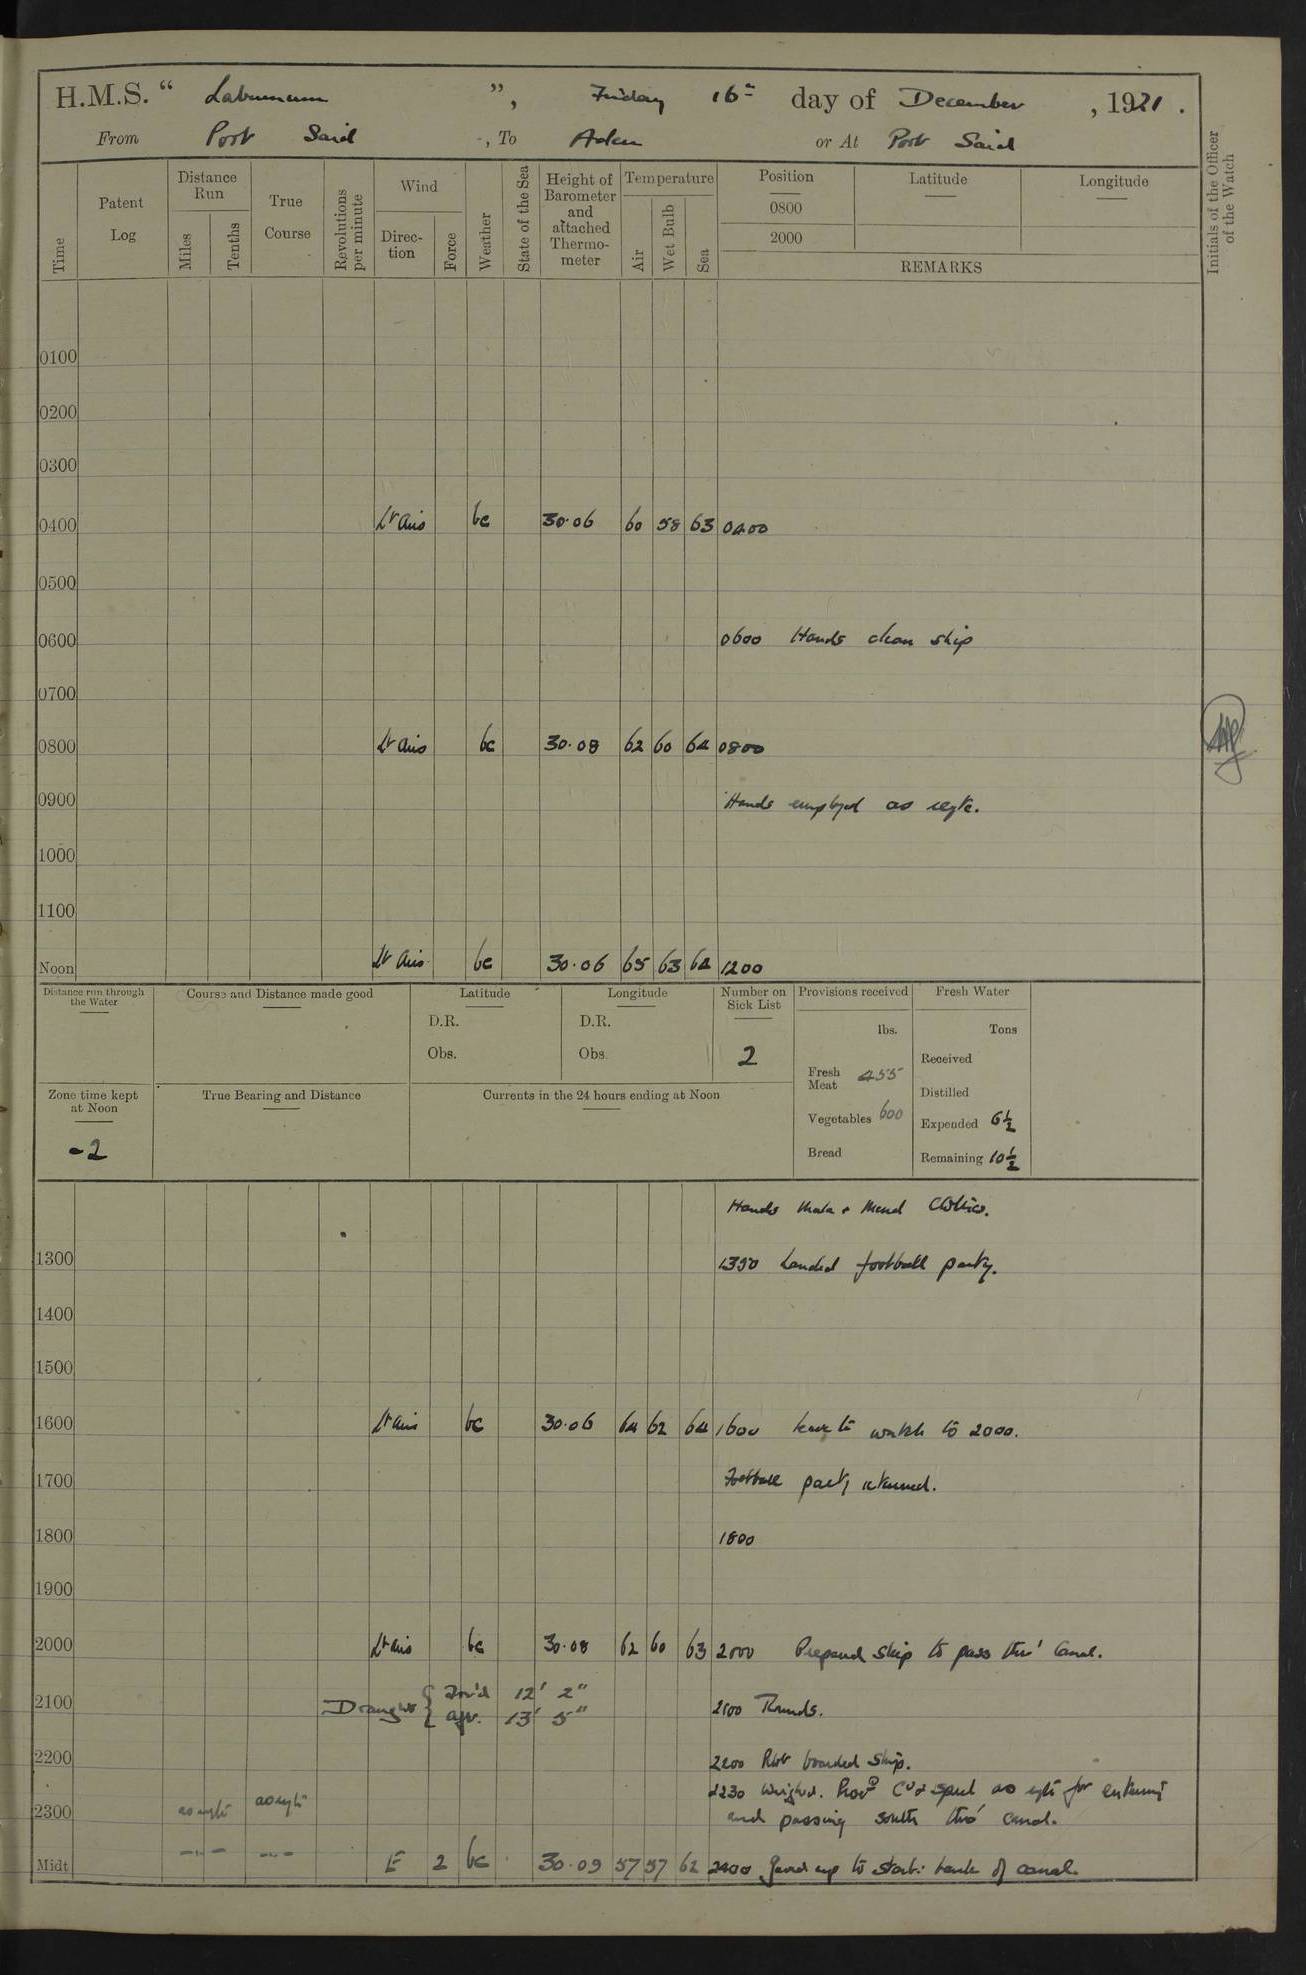 H.M.S. “ Laburnum ”, Friday 16th day of December, 1921.
From Port Said, To Aden or At Port Said
Time
Patent Log
Distance Run
Miles
Tenths
True Course
Revolutions per minute
Wind
Direction
Force
Weather
State of the Sea
Height of Barometer and attached Thermometer
Temperature
Air
Wet Bulb
Sea
Position
0800
2000
Latitude
Longitude
REMARKS
Initials of the Officer of the Watch
0100
0200
0300
0400 Lt airs bc 30.06 60 58 63 0400
0500
0600 0600 Hands clean ship
0700
0800 Lt airs bc 30.08 62 60 64 0800
0900 Hands employed as reqte.
1000
1100
Noon Lt airs bc 30.06 65 63 64 1200
Distance run through the Water
Course and Distance made good
Latitude
D.R.
Obs.
Longitude
D.R.
Obs.
Number on Sick List
2
Provisions received
lbs.
Fresh Meat 455
Vegetables 600
Bread
Fresh Water
Tons
Received
Distilled
Expended 6½
Remaining 10½
Zone time kept at Noon
-2
True Bearing and Distance
Currents in the 24 hours ending at Noon
Hands make & mend clothes.
1300 1330 Landed football party.
1400
1500
1600 Lt airs bc 30.06 64 62 64 1600 Leave to watch to 2000.
1700 Football party returned.
1800 1800
1900
2000 Lt airs bc 30.08 62 60 63 2000 Prepared ship to pass thro' Canal.
2100 Draught { For'd 12' 2" 2100 Rounds.
Aft. 13' 5"
2200 2200 Pilot boarded ship.
2230 Weighed. Procd Co & speed as reqte for entering
2300 as reqte as reqte and passing south thro' canal.
Midt -"- -"- E 2 bc 30.09 57 57 62 2400 Gared up to starb: bank of canal.